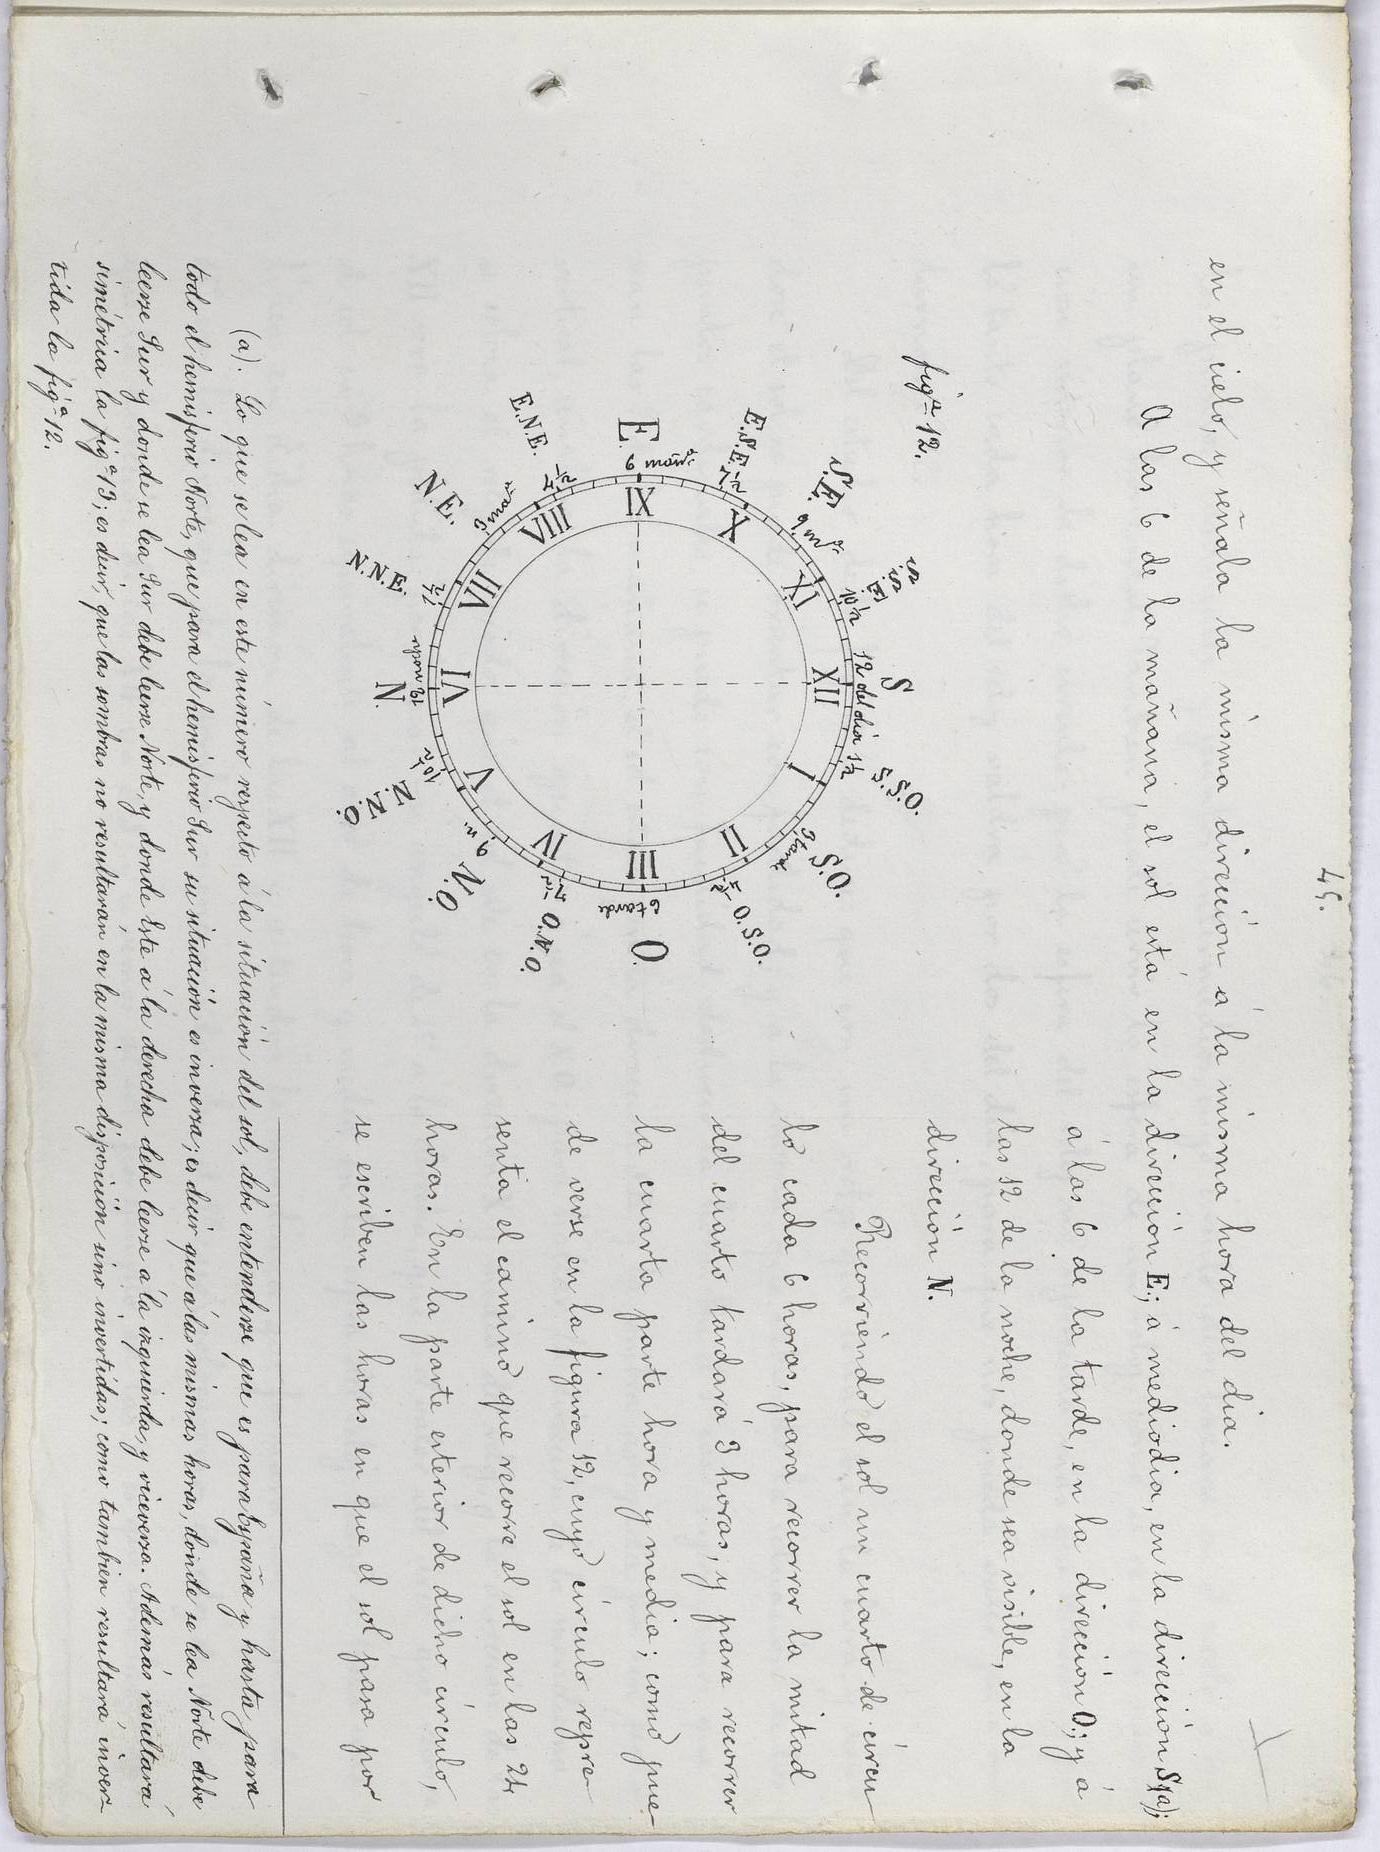 45.
en el cielo, y señala la misma dirección á la misma hora del dia.
A las 6 de la mañana, el sol está en la dirección E; á mediodia, en la dirección S(a);
á las 6 de la tarde, en la dirección O; y á
las 12 de la noche, donde sea visible, en la
dirección N.
Recorriendo el sol un cuarto de círcu-
lo cada 6 horas, para recorrer la mitad
del cuarto tardará 3 horas, y para recorrer
la cuarta parte hora y media; como pue-
de verse en la figura 12, cuyo círculo repre-
senta el camino que recorre el sol en las 24
horas. En la parte exterior de dicho círculo,
se escriben las horas en que el sol pasa por
figª 12.
S
12 del dia
XII
S.S.O.
1½
I
S.O.
3 tarde
II
O.S.O.
4½
O.
6 tarde
III
O.N.O.
7½
IV
N.O.
9 n.
V
N.N.O.
10½
N
12 noche
VI
N.N.E.
1½
VII
N.E.
3 mª
VIII
E.N.E.
4½
E.
6 mañª
IX
E.S.E.
7½
X
S.E.
9 mª
XI
S.S.E.
10½
(a). Lo que se lea en este número respecto á la situación del sol, debe entenderse que es para España y hasta para
todo el hemisferio Norte, que para el hemisferio Sur su situación es inversa; es decir que á las mismas horas, donde se lea Norte debe
leerse Sur y donde se lea Sur debe leerse Norte, y donde Este á la derecha debe leerse á la izquierda, y viceversa. Además resultará
simétrica la figª 13; es decir, que las sombras no resultarán en la misma disposición sinó invertidas; como tambien resultará inver-
tida la figª 12.